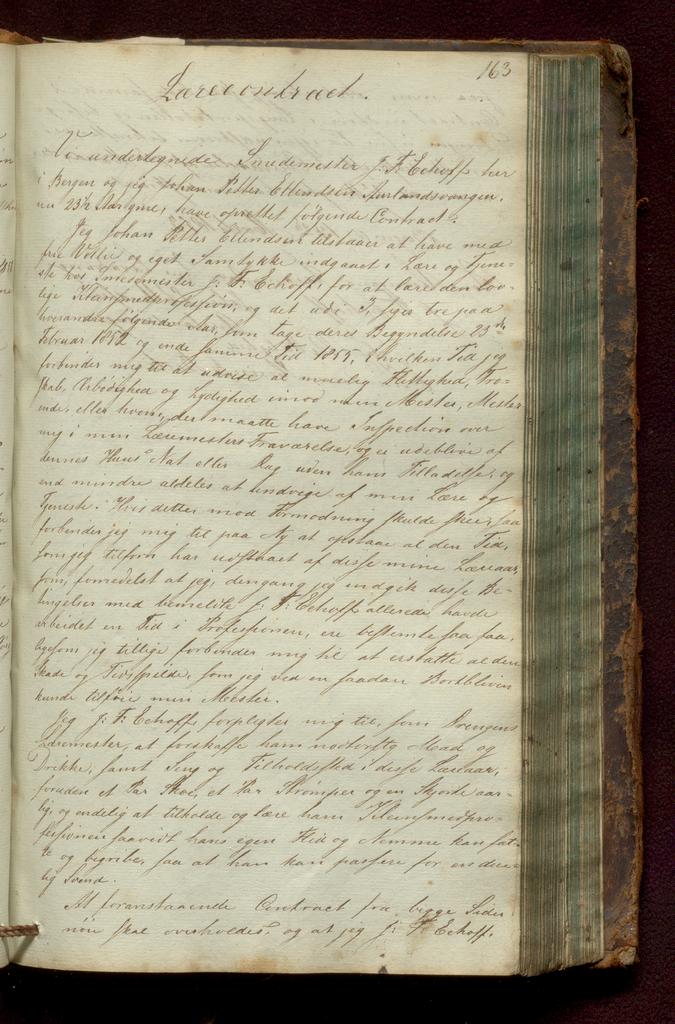 163
Lærecontract.
Vi undertegnede Smedemester J: F: Echoff her
i Bergen og jeg Johan Petter Ellendsen Aurlandsvangen,
nu 23½ Aar gml, have oprettet følgende Contract:
Jeg Johan Petter Ellendsen tilstaaer at have med
frie Villie og eget Samtykke indgaaet i Lære og Tjene-
ste hos Smedemester J: F: Echoff, for at lære den lov-
lige Kleinsmedprofession, og det udi 3, siger tre paa
hverandre følgende Aar, som tage deres Begyndelse 23de
Februar 1852 og ende samme Tid 1855, i hvilken Tid jeg
forbinder mig til at udvise al muelig Flittighed, Tro-
skab, Ærbødighed og Lydighed imod min Mester, Mester
inde, eller hvem, der maatte have Inspection over
mig i min Læremesters Fraværelse, og ei udeblive af
dennes Huus Nat eller Dag uden hans Tilladelse, og
end mindre aldeles at undvige af min Lære og
Tjeneste. Hvis dette mod Formodning skulde skee, saa
forbinder jeg mig til paa Ny at opstaae al den Tid,
som jeg tilforn har udstaaet af disse mine Læreaar,
som, formedelst at jeg, dengang jeg indgik disse Be-
tingelser med bemeldte J: F: Echoff allerede havde
arbeidet en Tid i Professionen, ere bestemte saa faa,
ligesom jeg tillige forbinder mig til at erstatte al den
Skade og Tidsspilde, som jeg ved en saadan Bortbliven
kunde tilføie min Mester.
Jeg J: F: Echoff, forpligter mig til, som Drengens
Læremester, at forskaffe ham nødtørftig Mad og
Drikke, samt Seng og Tilholdssted i disse Læreaar,
foruden et Par Skoe, et Par Strømper og en Skjorte aar-
lig, og endelig at tilholde og lære ham Kleinsmedpro-
fessionen saavidt hans egen Flid og Nemme kan fat-
te og begribe, saa at han kan passere for en duelig
Svend.
At foranstaaende Contract fra begge Sider
nøie skal overholdes, og at jeg J: F: Echoff,